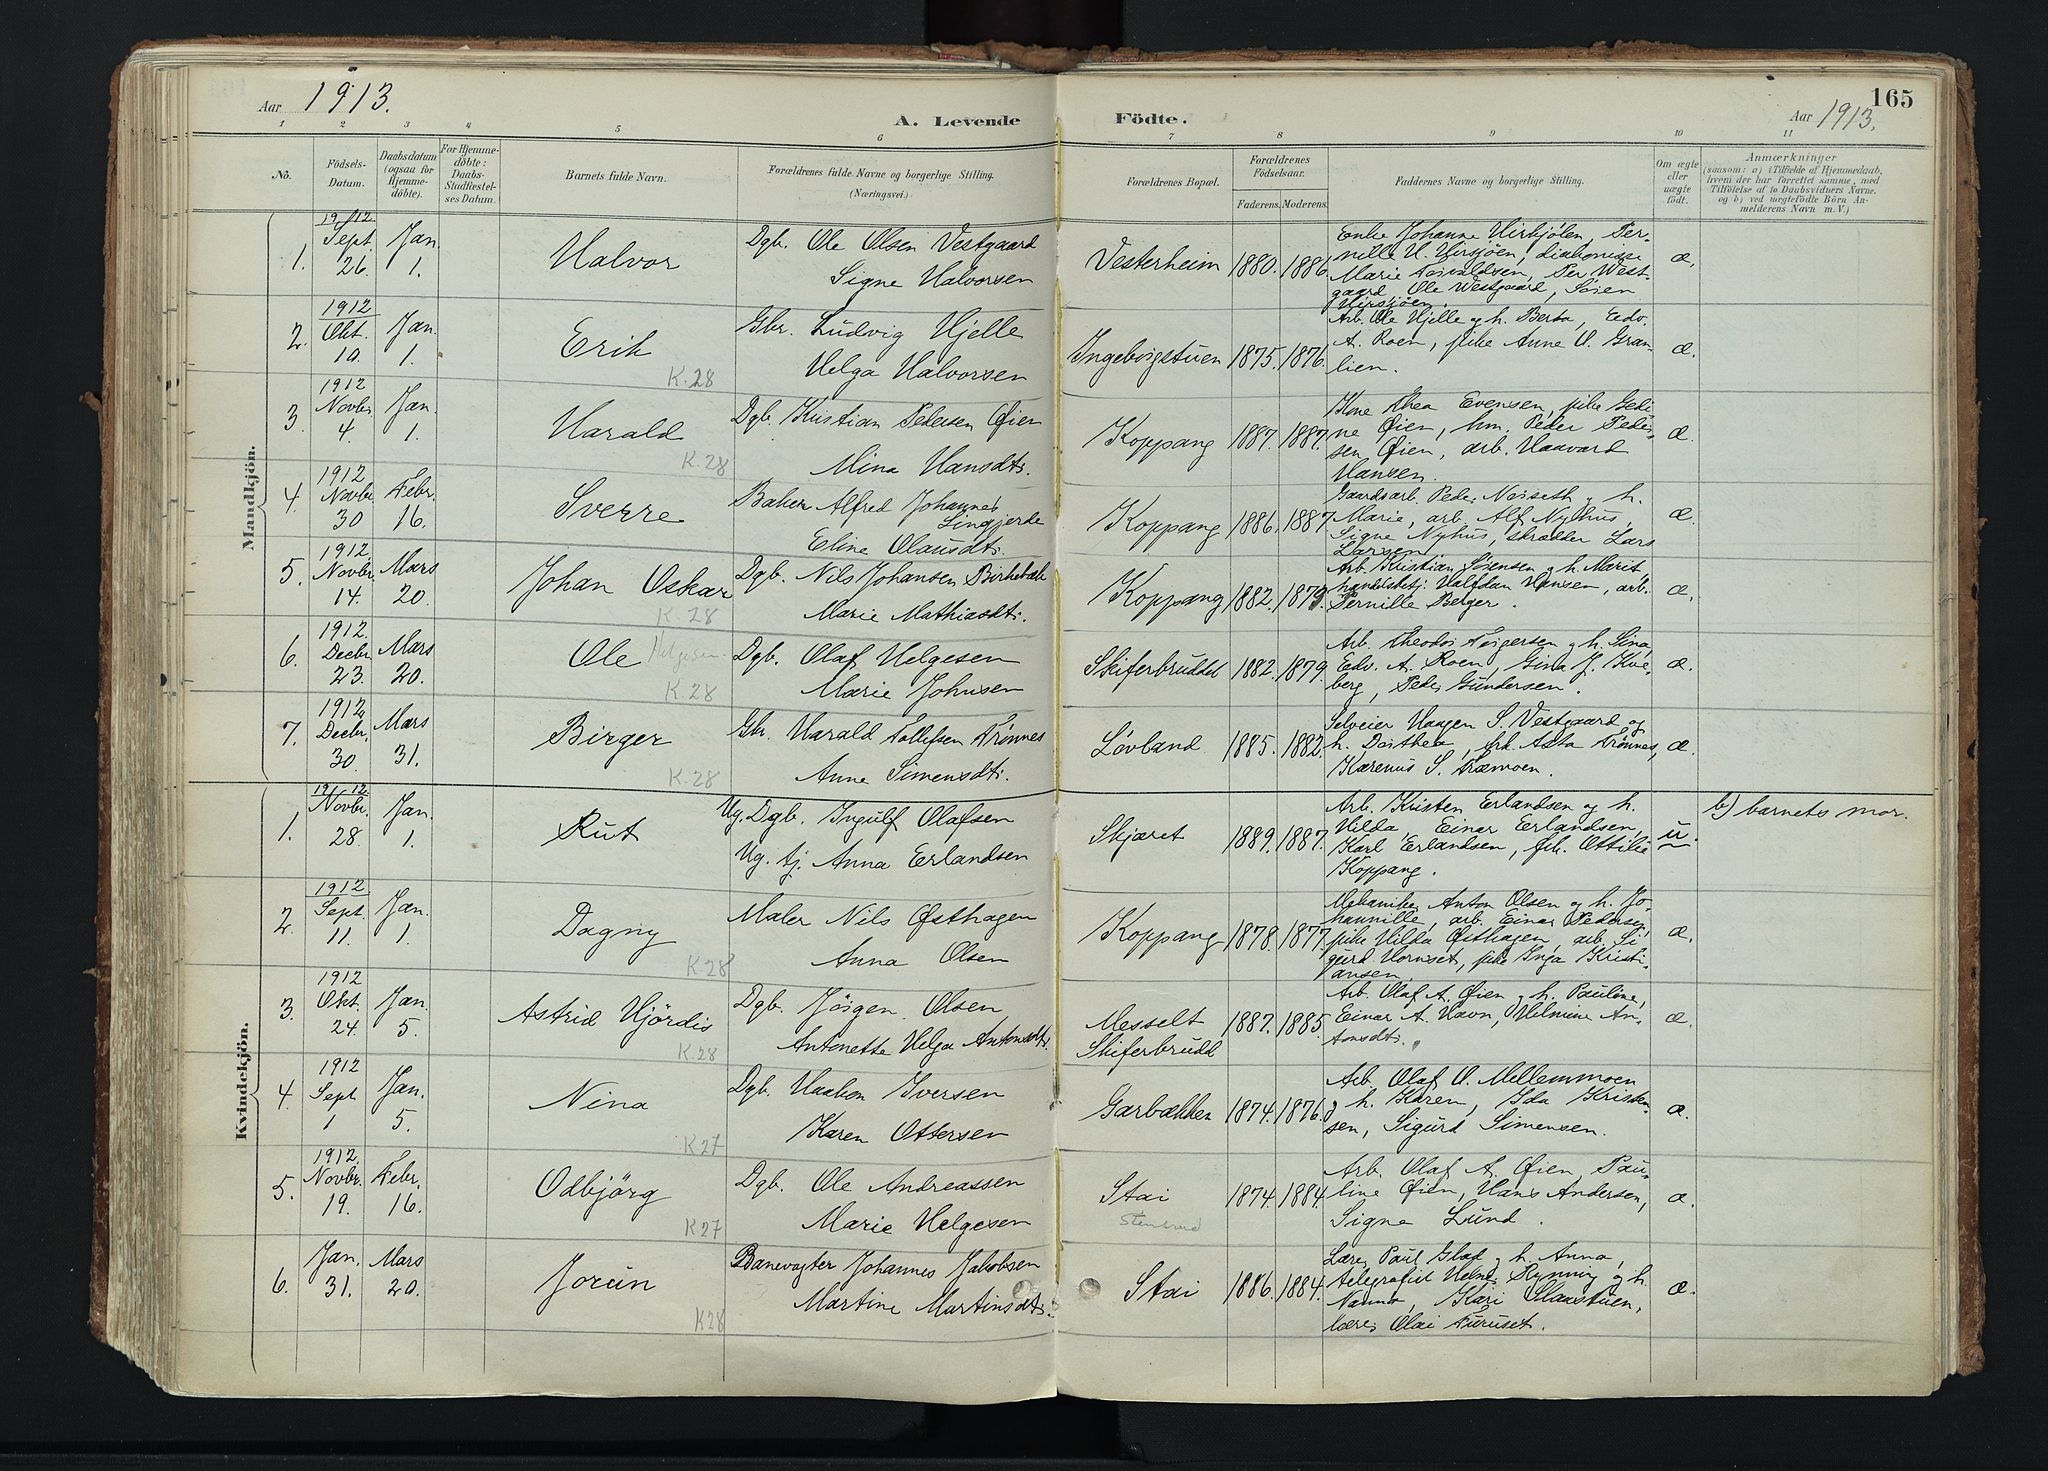 Aar 1913.
A. Levende
Födte.
165
Aar 1913.
1 2 3 4 5 6 7 8 9 10 11
No.
Födsels-
Datum.
Daabsdatum
(ogsaa for
Hjemme-
döbte).
For Hjemme-
döbte:
Daabs-
Stadfæstel-
ses Datum.
Barnets fulde Navn.
Forældrenes fulde Navne og borgerlige Stilling.
(Næringsvei.)
Forældrenes Bopæl.
Forældrenes
Födselsaar.
Faderens. Moderens.
Faddernes Navne og borgerlige Stilling.
Om ægte
eller
uægte
födt.
Anmærkninger
(saasom: a) i Tilfælde af Hjemmedaab,
hvem der har forrettet samme, med
Tilföielse af to Daabsvidners Navne.
og b) ved uægtefödte Börn An-
melderens Navn m. V.)
Mandkjön.
1. 1912. Sept. 26. Jan. 1. Halvor
Dgb. Ole Olsen Vestgaard
Signe Halvorsen
Vesterheim 1880. 1886.
Enke Johanne Hirkjølen, Per-
nille H. Hirsjøen, diakonisse
Marie Torvaldsen, Per West-
gaard, Ole Westgaard, Søren
Hirsjøen.
æ.
2. 1912 Okt. 10. Jan. 1. Erik K.28
Gbr. Ludvig Hjelle
Helga Halvorsen
Ingeborgstuen 1875. 1876.
Arb. Ole Hjelle og h. Berta, Edv.
A. Roen, pike Anne O. Gran-
lien.
æ.
3. 1912 Novbr. 4. Jan. 1. Harald K.28
Dgb. Kristian Pedersen Øien
Mina Hansdtr.
Koppang 1887. 1887.
Kone Thea Evensen, pike Gedi-
ne Øien, hm. Peder Peder-
sen Øien, arb. Haavard
Hansen.
æ.
4. 1912 Novbr. 30 Febr. 16. Sverre
Baker Alfred Johannes
Lingjerde
Eline Olausdtr.
Koppang 1886. 1887.
Gaardsarb. Peder Neiseth og h.
Marie, arb. Alf Nyhus,
Signe Nyhus, skrædder Lars
Larsen
æ.
5. 1912. Novbr. 14. Mars 20. Johan Oskar K.28
Dgb. Nils Johansen Birkebæk
Marie Mathiasdtr.
Koppang 1882. 1879.
Arb. Kristian Sørensen og h. Marit
handelsbetj. Halfdan Hansen, arb.
Pernille Berger.
æ.
6. 1912. Decbr. 23. Mars 20. Ole Helgesen K.28
Dgb. Olaf Helgesen
Marie Johnsen
Skiferbruddet 1882. 1879.
Arb. Theodor Torgersen og h. Sina,
Edv. A. Roen, Gina J. Kve-
berg, Peder Gundersen.
æ.
7. 1912 Decbr. 30. Mars 31. Birger K.28
Gbr. Harald Tollefsen Trønnes
Anne Simensdtr.
Løvland 1885. 1882.
Selveier Haagen S. Vestgaard og
h. Dorthea, frk. Asta Trønnes,
Karenus S. Træmoen.
æ.
Kvindekjön.
1. 1912. Novbr. 28. Jan. 1. Rut
Ug. Dgb. Ingulf Olafsen
Ug. tj. Anna Erlandsen
Skjæret 1889. 1887.
Arb. Kristen Erlandsen og h.
Hilda, Einar Erlandsen,
Karl Erlandsen, frk. Ottilie
Koppang.
u.
b) barnets mor.
2. 1912 Sept. 11. Jan. 1. Dagny K.28
Maler Nils Østhagen
Anna Olsen
Koppang 1878. 1877.
Mekaniker Anton Olsen og h. Jo-
hannille, arb. Einar Pedersen,
pike Hilda Østhagen, arb. Si-
gurd Hornset, pike Inga Kristi-
ansen.
æ.
3. 1912 Okt. 24. Jan. 5. Astrid Hjördis K.28
Dgb. Jörgen Olsen
Antonette Helga Antonsdtr.
Messelt
Skiferbrudd
1887. 1885.
Arb. Olaf A. Øien og h. Pauline,
Einar A. Havn, Hilmine An-
tonsdtr.
æ.
4. 1912 Sept. 1 Jan. 5. Nina K27
Dgb. Haakon Iversen
Karen Ottersen
Garbækken 1874. 1876.
Arb. Olaf O. Mellemmoen
og h. Karen, Ida Kristen-
sen, Sigurd Simensen.
æ.
5. 1912. Novbr. 19. Febr. 16. Odbjörg K27
Dgb. Ole Andreassen
Marie Helgesen
Stai
Stensrud
1874. 1884.
Arb. Olaf A. Øien, Pau-
line Øien, Hans Andersen,
Signe Lund.
æ.
6. Jan. 31. Mars 20. Jorun K28
Banevogter Johannes Jakobsen
Martine Martinsdtr.
Stai 1886. 1884.
Lærer Paul Glad og h. Anna,
telegrafist Helmer Rynning og h.
Nanna, Kari Slaastuen,
lærer Olai Furuset.
æ.